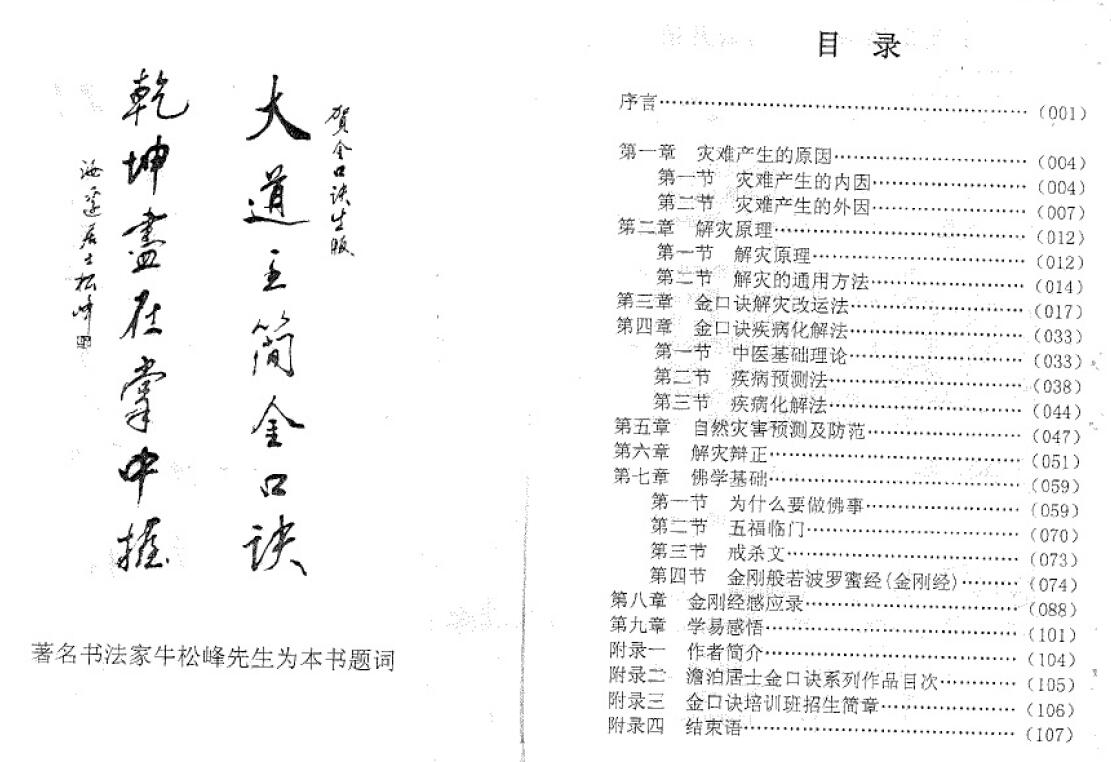 賀金口诀出版
大道至簡金口诀
乾坤盡在掌中握
居士松峰
著名书法家牛松峰先生为本书题词
目 录
序言……(001)
第一章 灾难产生的原因……(004)
第一节 灾难产生的内因……(004)
第二节 灾难产生的外因……(007)
第二章 解灾原理……(012)
第一节 解灾原理……(012)
第二节 解灾的通用方法……(014)
第三章 金口诀解灾改运法……(017)
第四章 金口诀疾病化解法……(033)
第一节 中医基础理论……(033)
第二节 疾病预测法……(038)
第三节 疾病化解法……(044)
第五章 自然灾害预测及防范……(047)
第六章 解灾辩正……(051)
第七章 佛学基础……(059)
第一节 为什么要做佛事……(059)
第二节 五福临门……(070)
第三节 戒杀文……(073)
第四节 金刚般若波罗蜜经(金刚经)……(074)
第八章 金刚经感应录……(088)
第九章 学易感悟……(101)
附录一 作者简介……(104)
附录二 澹泊居士金口诀系列作品目次……(105)
附录三 金口诀培训班招生简章……(106)
附录四 结束语……(107)